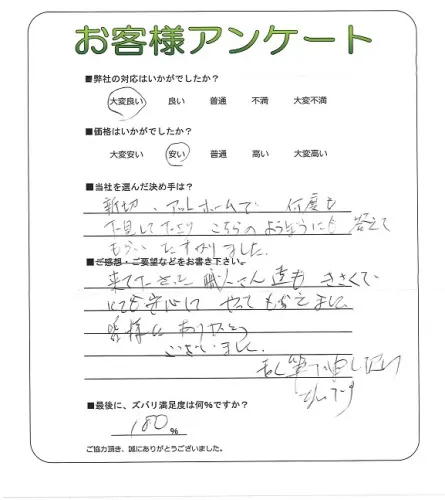 お客様アンケート
■弊社の対応はいかがでしたか?
大変良い 良い 普通 不満 大変不満
■価格はいかがでしたか?
大変安い 安い 普通 高い 大変高い
■当社を選んだ決め手は?
親切、アットホームで 何度も
下見して下さり こちらのようぼうにも 答えて
もらい たすかりました。
■ご感想・ご要望などをお書き下さい。
来て下さった 職人さん達も きさくで
安心して やってもらえました。
皆様に ありがとう
ございました。
■最後に、ズバリ満足度は何%ですか?
100 %
ご協力頂き、誠にありがとうございました。